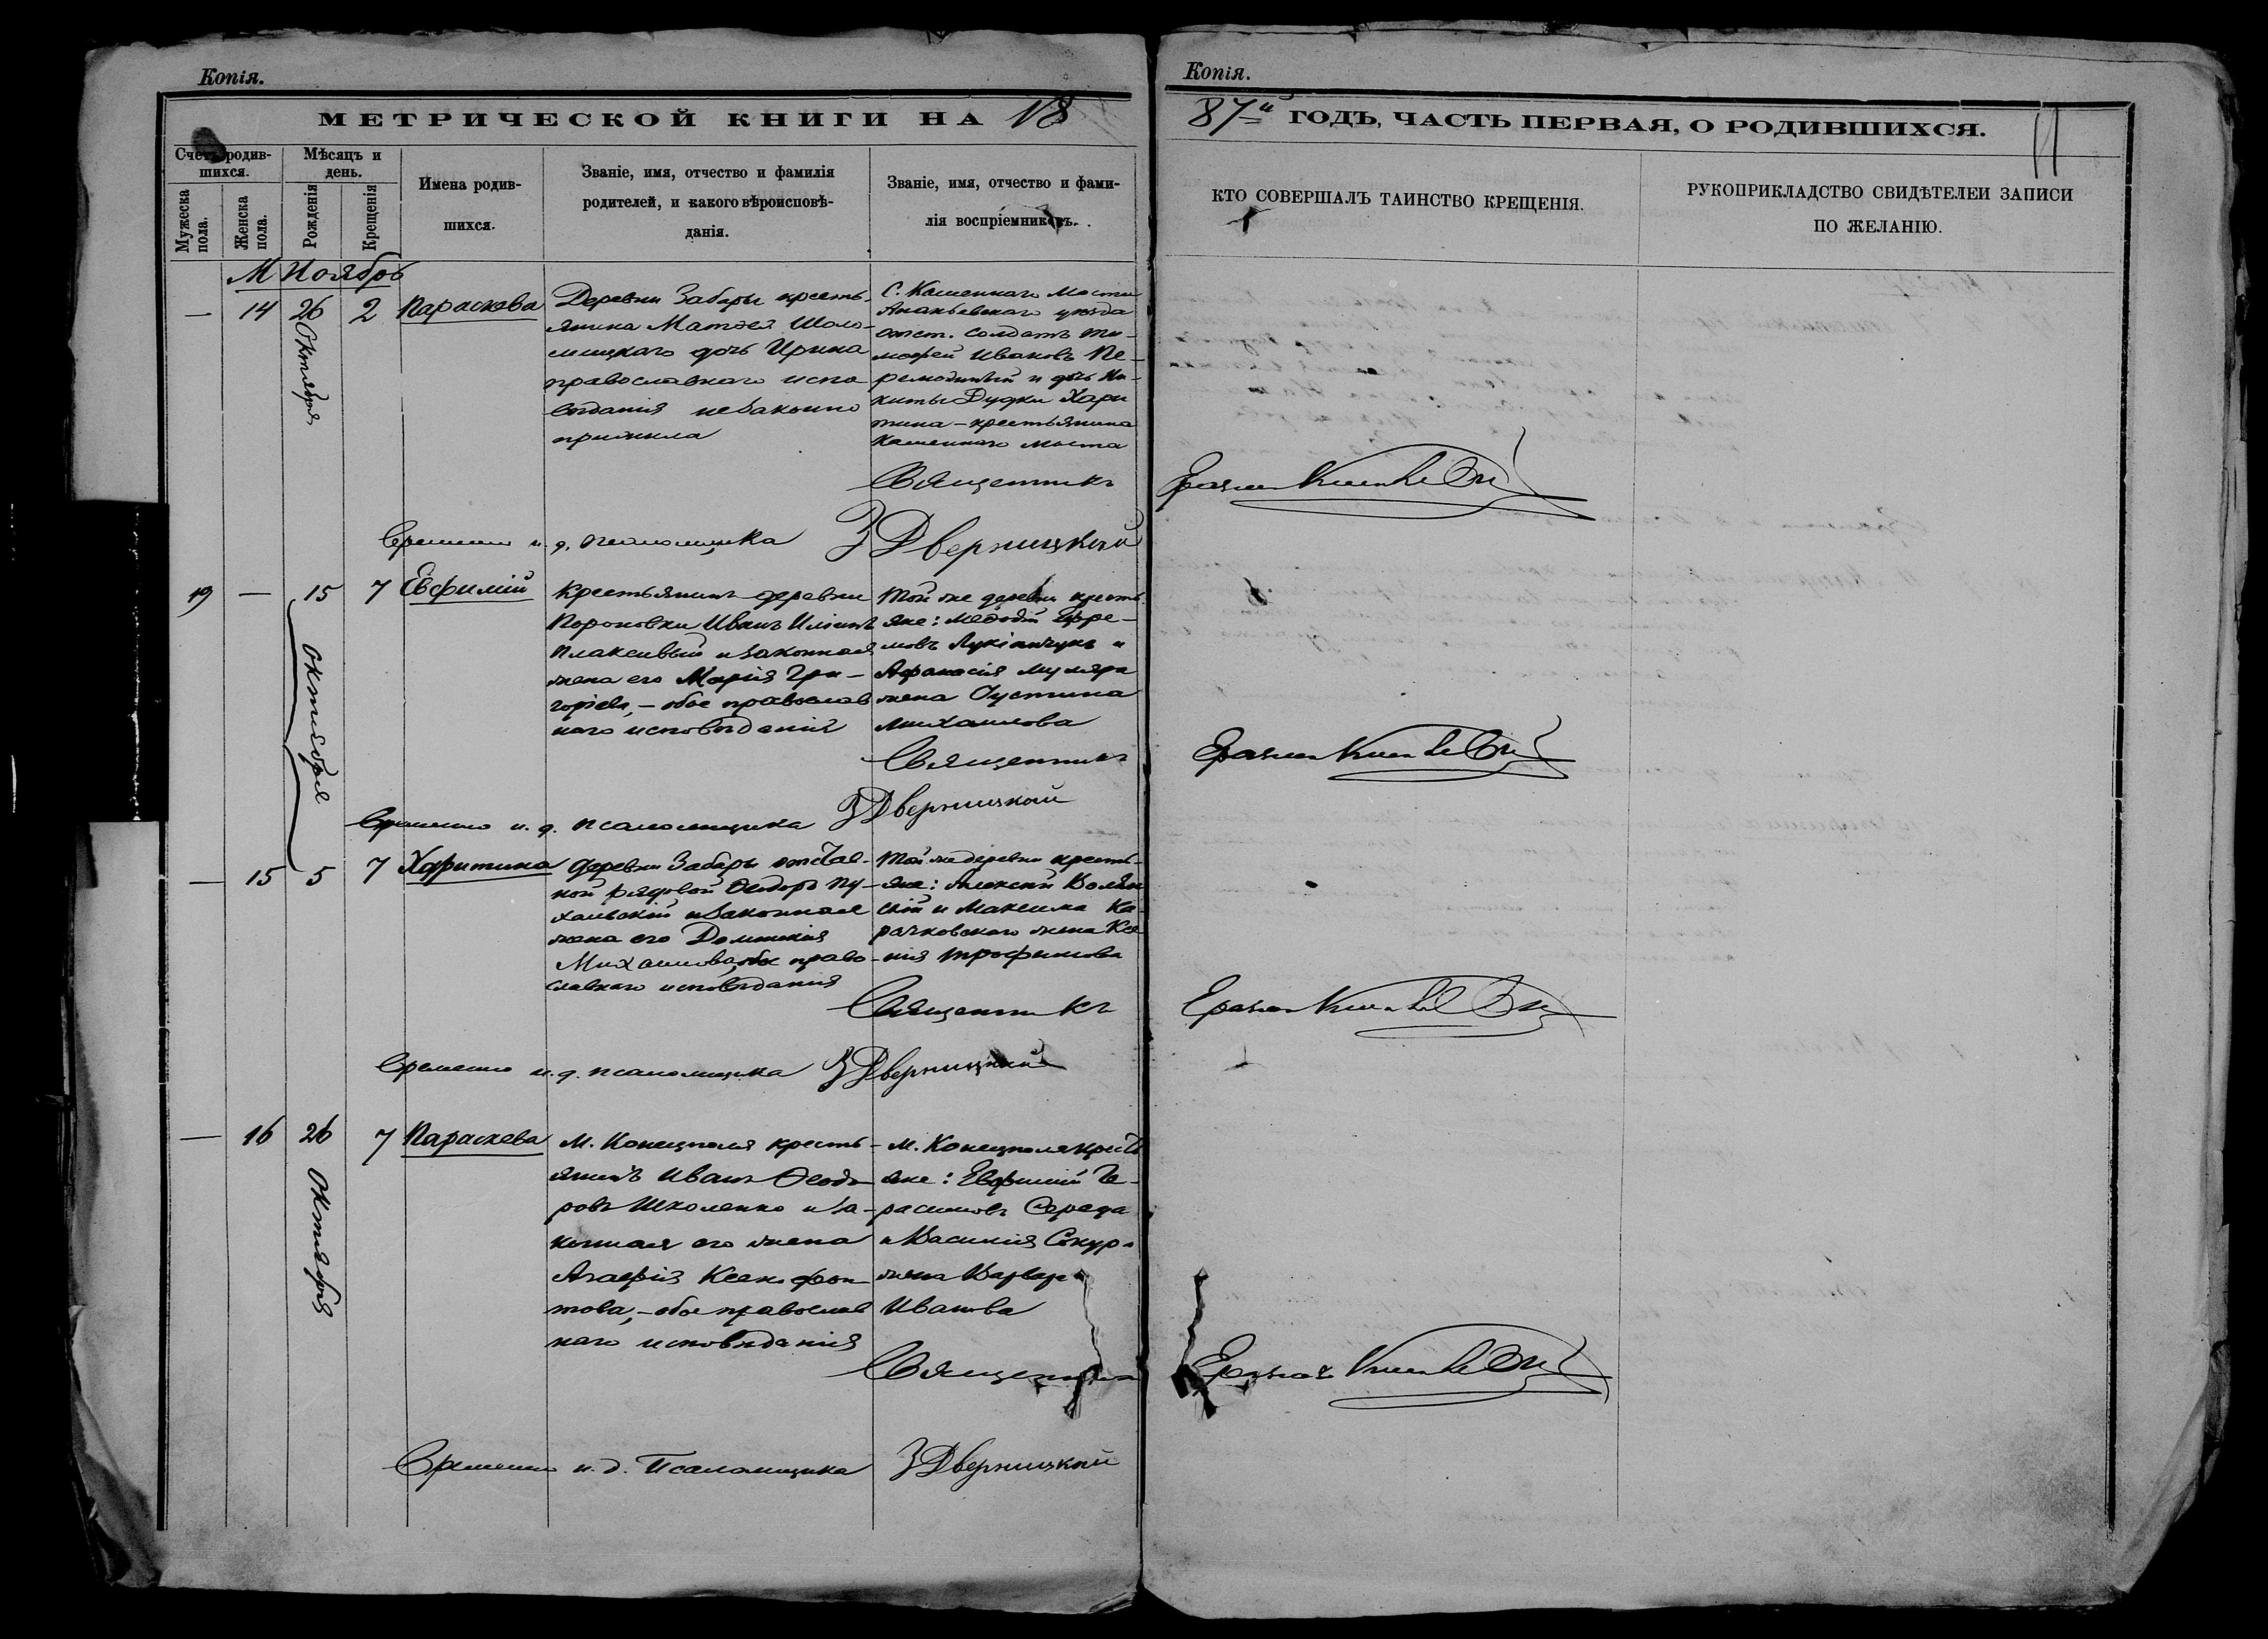 Копія.
МЕТРИЧЕСКОЙ КНИГИ НА 18
Счетъ родив-
шихся.
Мѣсяцъ и
день.
Мужеска
пола.
Женска
пола.
Рожденія
Крещенія
Имена родив-
шихся.
Званіе, имя, отчество и фамилія
родителей, и какого вѣроисповѣ-
данія.
Званіе, имя, отчество и фами-
лія воспріемниковъ.
М Ноябрь
— 14 26 2 Параскева
Октября
Деревни Забары кресть-
янина Матѳея Шоло-
мицкаго дочь Ирина
православнаго испо-
вѣданія незаконно
прижила
С. Каменнаго Моста
Ананьевскаго уѣзда
отст. солдатъ Ти-
мофей Ивановъ
и дочь Ни-
киты Дудки Хари
тина – крестьянина
Каменнаго Моста
Священникъ
Временно и. д. псаломщика З Дверницкій
19 — 15 7 Евфимій
Октября
Крестьянинъ деревни
Иванъ
Плаксивый и законная
жена его Марія Гри-
горіева, – обое православ
наго исповѣданія
Той же деревни кресть
яне: Меѳодій Ефре-
мовъ Лукіанчукъ и
Афанасія Муляра
жена Іустина
Михаилова
Священникъ
Временно и. д. псаломщика З Дверницкій
— 15 5 7 Харитина
деревни Забары отстав-
ной рядовой Ѳеодоръ Пу-
хальскій и законная
жена его Домникія
Михаилова, обое право-
славнаго исповѣданія
Той же деревни кресть-
яне: Алексій Волян
скій и Максима Ка-
рачковскаго жена Ксе
нія Трофимова
Священникъ
Временно и. д. псаломщика З Дверницкій
— 16 26 7 Параскева
Октября
М. Конецполя кресть-
янинъ Иванъ Ѳеодо-
ровъ Школенко и за-
конная его жена
Агафія Ксенофон-
това, – обое православ
наго исповѣданія
М. Конецполя крест
яне: Евфимій Ге-
расимовъ Середа
и Василія Сокур
жена Варвара
Иванова
Священникъ
Временно и. д. Псаломщика З Дверницкій
Копія.
87й ГОДЪ, ЧАСТЬ ПЕРВАЯ, О РОДИВШИХСЯ.
11
КТО СОВЕРШАЛЪ ТАИНСТВО КРЕЩЕНІЯ.
РУКОПРИКЛАДСТВО СВИДѢТЕЛЕЙ ЗАПИСИ
ПО ЖЕЛАНІЮ.